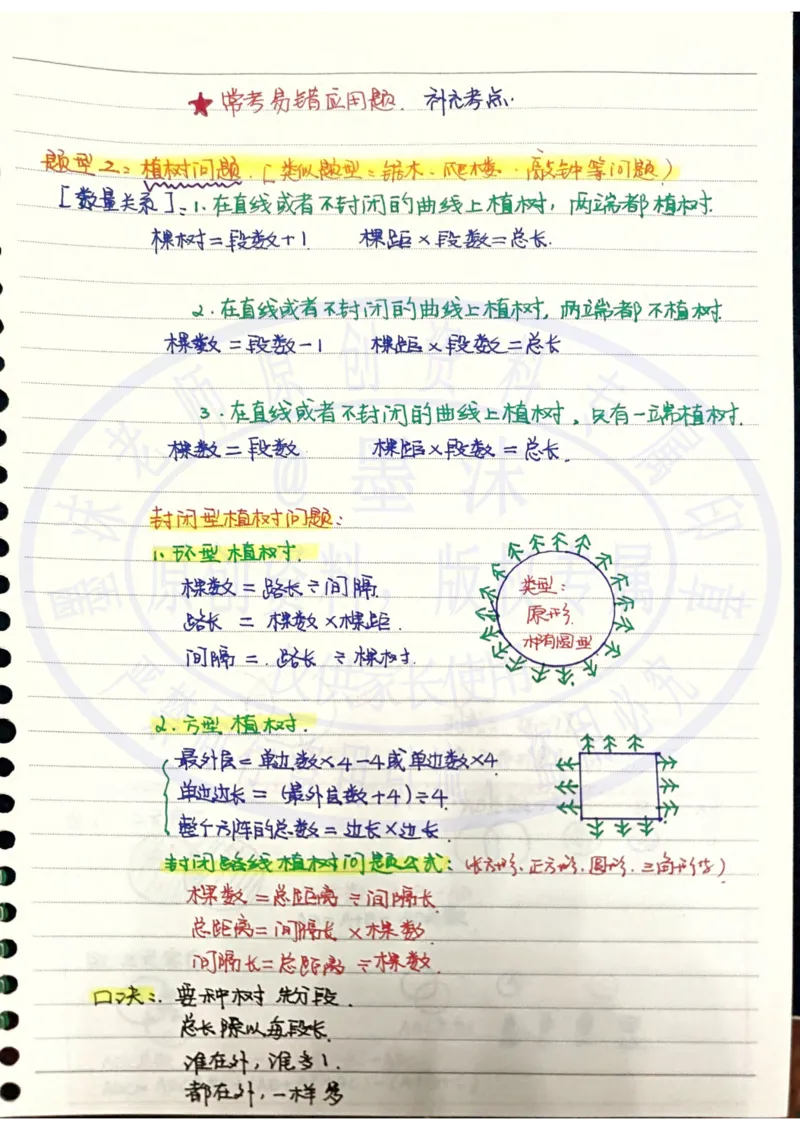 ★常考易错应用题. 补充考点.
题型2:植树问题.(类似题型:锯木.爬楼.敲钟等问题)
[数量关系]:1.在直线或者不封闭的曲线上植树,两端都植树.
棵树=段数+1 棵距×段数=总长.
2.在直线或者不封闭的曲线上植树,两端都不植树.
棵数=段数-1 棵距×段数=总长
3.在直线或者不封闭的曲线上植树,只有一端植树.
棵数=段数 棵距×段数=总长.
封闭型植树问题:
1.环型植树.
棵数=路长÷间隔
路长=棵数×棵距.
间隔=.路长÷棵树.
类型:
原形.
椭圆型
2.方型植树.
最外层=单边数×4-4或单边数×4
单边边长=(最外层数+4)÷4
整个方阵的总数=边长×边长
封闭路线植树问题公式:(长方形.正方形.圆形.三角形等)
棵数=总距离÷间隔长
总距离=间隔长×棵数
间隔长=总距离÷棵数
口决:.要种树先分段.
总长除以每段长.
谁在外,谁多1.
都在外,一样多
@墨沫
墨沫老师原创资料专属印章
原创资料,版权专属
仅供家长使用